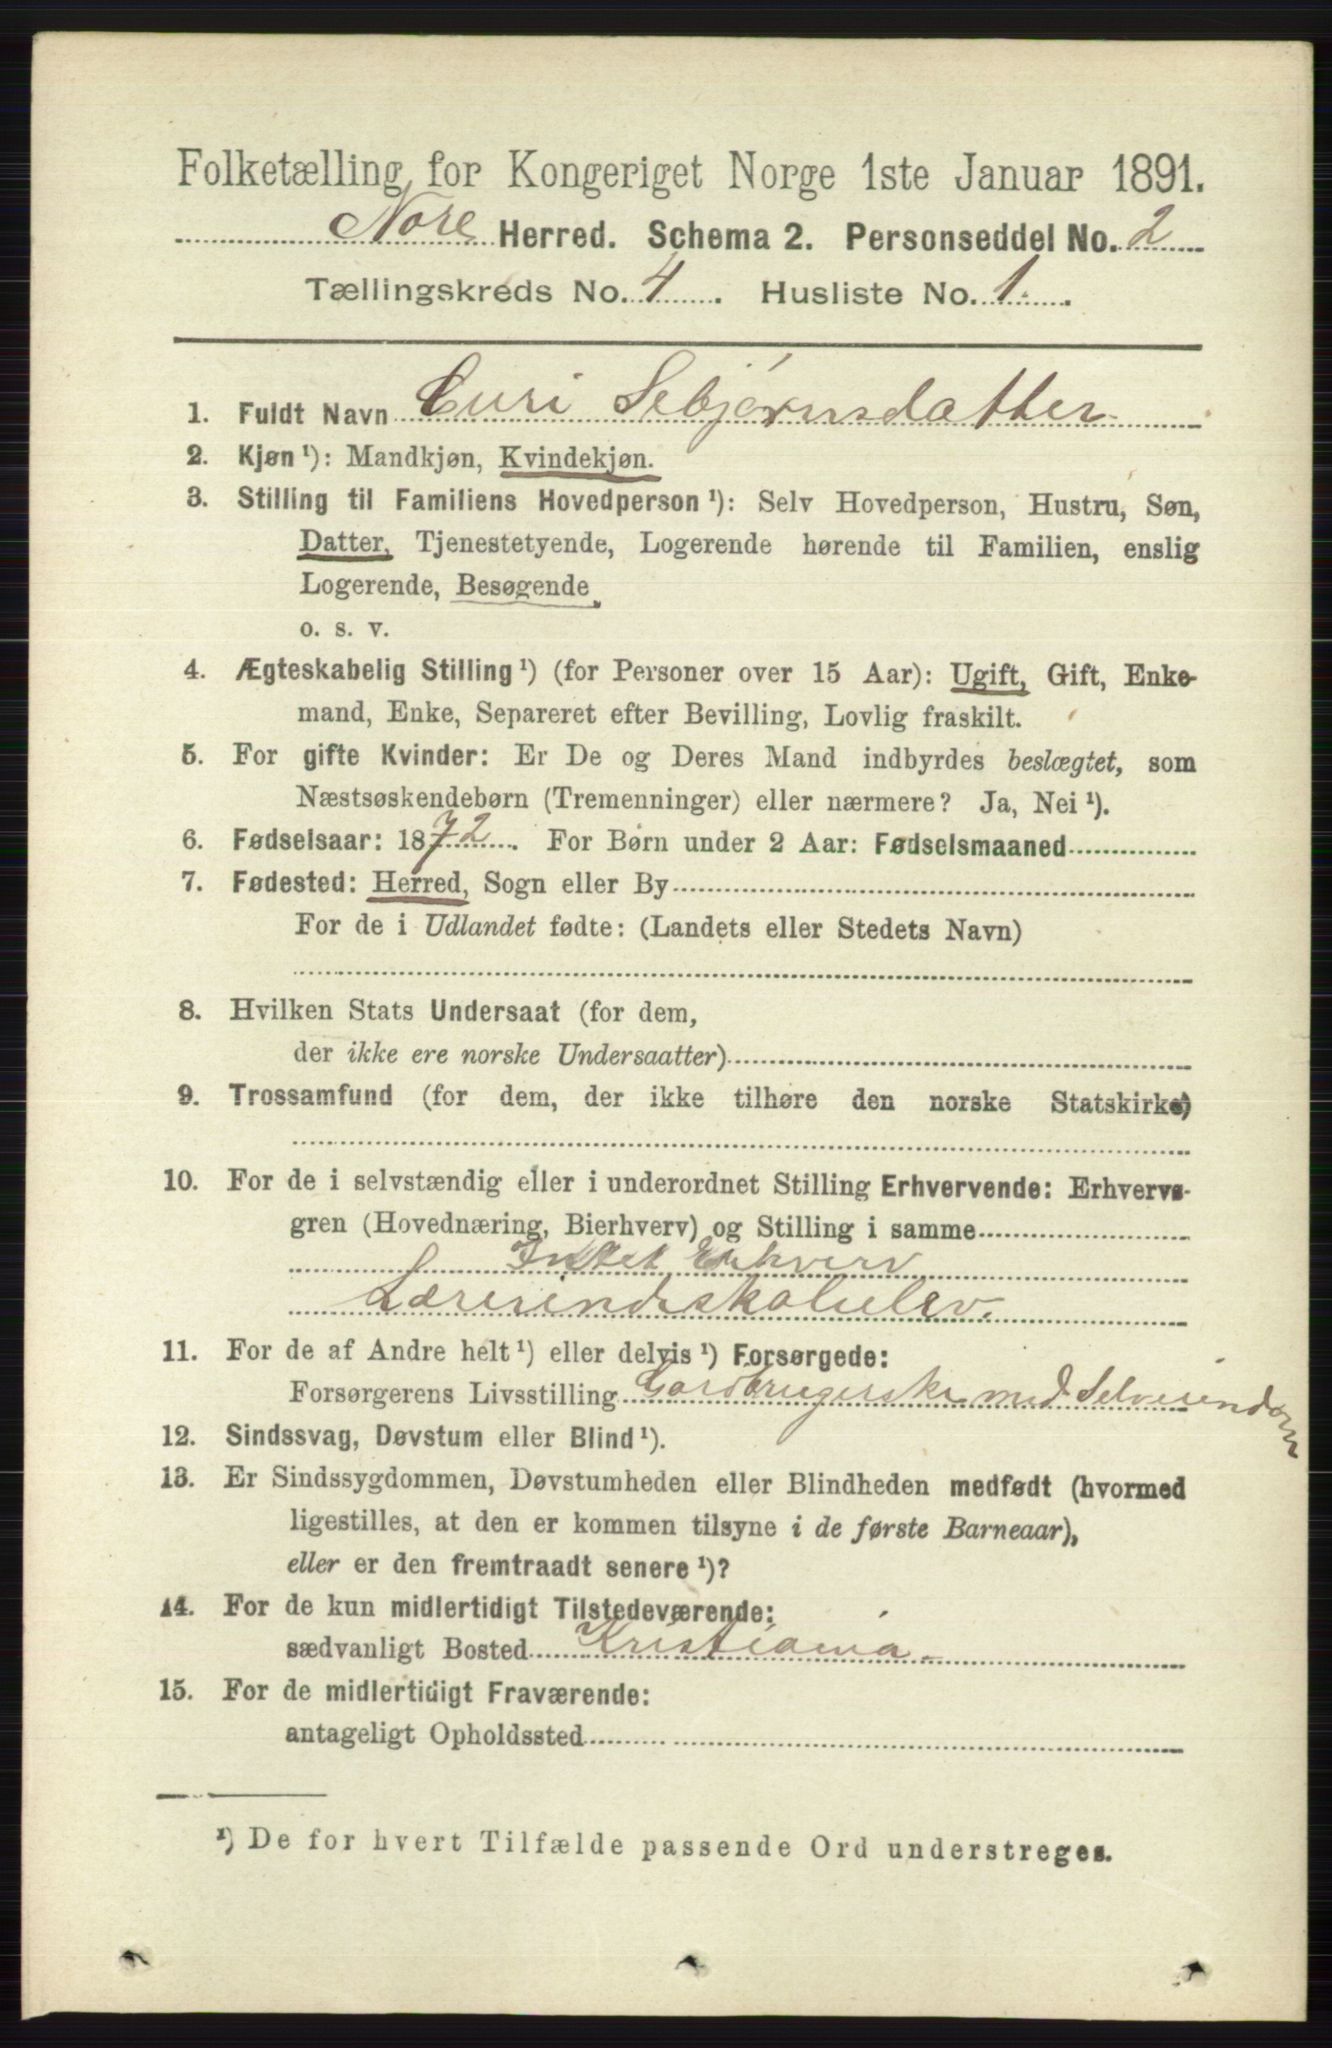 Folketælling for Kongeriget Norge 1ste Januar 1891.
Nore Herred. Schema 2. Personseddel No. 2
Tællingskreds No. 4. Husliste No. 1.
1. Fuldt Navn Guri Sebjørnsdatter
2. Kjøn ¹): Mandkjøn, Kvindekjøn.
3. Stilling til Familiens Hovedperson ¹): Selv Hovedperson, Hustru, Søn,
Datter, Tjenestetyende, Logerende hørende til Familien, enslig
Logerende, Besøgende
o. s. v.
4. Ægteskabelig Stilling ¹) (for Personer over 15 Aar): Ugift, Gift, Enke-
mand, Enke, Separeret efter Bevilling, Lovlig fraskilt.
5. For gifte Kvinder: Er De og Deres Mand indbyrdes beslægtet, som
Næstsøskendebørn (Tremenninger) eller nærmere? Ja, Nei ¹).
6. Fødselsaar: 1872. For Børn under 2 Aar: Fødselsmaaned
7. Fødested: Herred, Sogn eller By
For de i Udlandet fødte: (Landets eller Stedets Navn)
8. Hvilken Stats Undersaat (for dem,
der ikke ere norske Undersaatter)
9. Trossamfund (for dem, der ikke tilhøre den norske Statskirke)
10. For de i selvstændig eller i underordnet Stilling Erhvervende: Erhvervs-
gren (Hovednæring, Bierhverv) og Stilling i samme
Intet Erhverv
Lærerindeskoleelev.
11. For de af Andre helt ¹) eller delvis ¹) Forsørgede:
Forsørgerens Livsstilling Gardbrugerske med Selveiendom
12. Sindssvag, Døvstum eller Blind ¹).
13. Er Sindssygdommen, Døvstumheden eller Blindheden medfødt (hvormed
ligestilles, at den er kommen tilsyne i de første Barneaar),
eller er den fremtraadt senere ¹)?
14. For de kun midlertidigt Tilstedeværende:
sædvanligt Bosted Kristiania
15. For de midlertidigt Fraværende:
antageligt Opholdssted
¹) De for hvert Tilfælde passende Ord understreges.